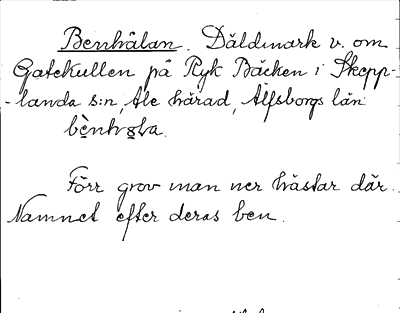 Benhålan. Däldmark v. om
Gatekullen på Ryk Bäcken i Skepp-
-landa s:n, Ale härad, Älfsborgs län
Förr grov man ner hästar där.
Namnet efter deras ben.